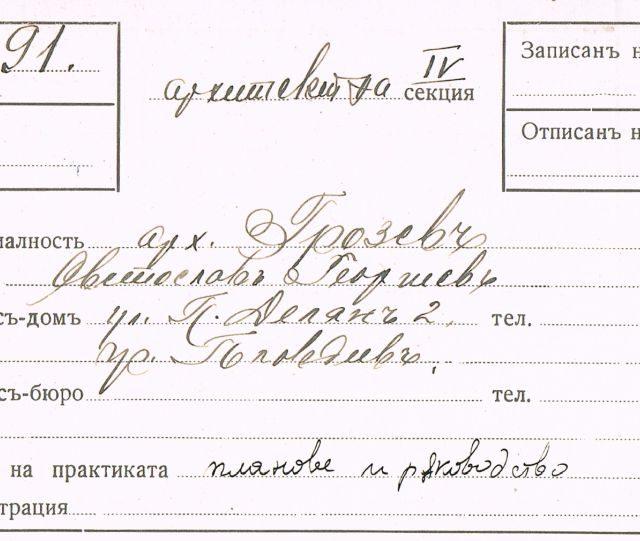 91.
IV
архитектура секция
Записанъ н
Отписанъ н
иалность арх. Грозевъ
Светославъ Георгиевъ
съ-домъ ул. П. Делянъ 2. тел.
гр. Пловдивъ,
съ-бюро тел.
на практиката планове и рѫководство
трация